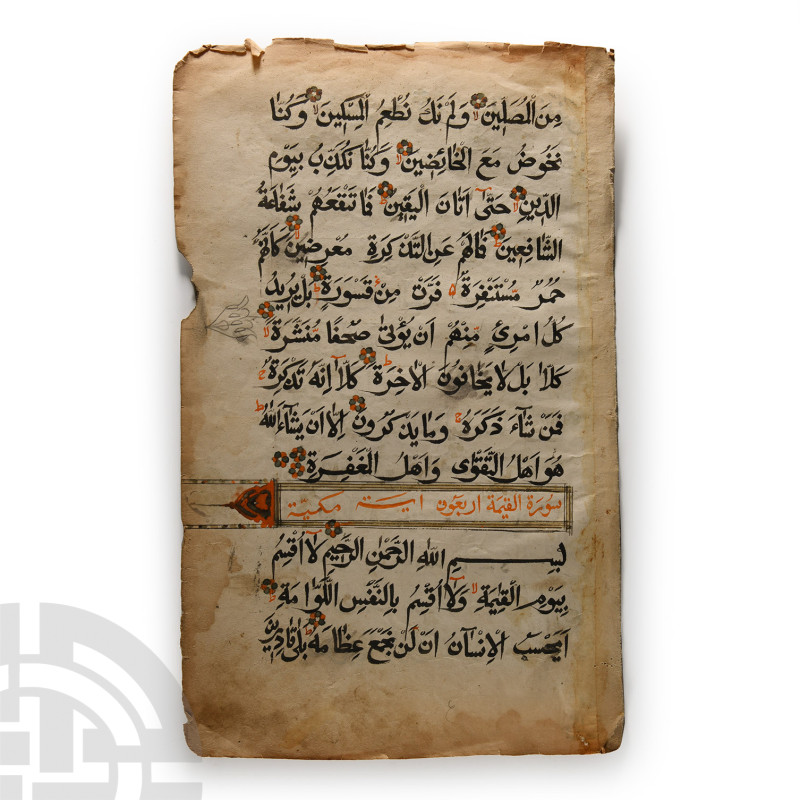 مِنَ الْمُصَلِّينَ وَلَمْ نَكُ نُطْعِمُ الْمِسْكِينَ وَكُنَّا
نَخُوضُ مَعَ الْخَائِضِينَ وَكُنَّا نُكَذِّبُ بِيَوْمِ
الدِّينِ حَتَّىٰ أَتَانَا الْيَقِينُ فَمَا تَنْفَعُهُمْ شَفَاعَةُ
الشَّافِعِينَ فَمَا لَهُمْ عَنِ التَّذْكِرَةِ مُعْرِضِينَ كَأَنَّهُمْ
حُمُرٌ مُسْتَنْفِرَةٌ فَرَّتْ مِنْ قَسْوَرَةٍ بَلْ يُرِيدُ
كُلُّ امْرِئٍ مِنْهُمْ أَنْ يُؤْتَىٰ صُحُفًا مُنَشَّرَةً
كَلَّا بَلْ لَا يَخَافُونَ الْآخِرَةَ كَلَّا إِنَّهُ تَذْكِرَةٌ
فَمَنْ شَاءَ ذَكَرَهُ وَمَا يَذْكُرُونَ إِلَّا أَنْ يَشَاءَ اللَّهُ
هُوَ أَهْلُ التَّقْوَىٰ وَأَهْلُ الْمَغْفِرَةِ
سورة القيمة اربعون اية مكية
بِسْمِ اللَّهِ الرَّحْمَٰنِ الرَّحِيمِ لَا أُقْسِمُ
بِيَوْمِ الْقِيٰمَةِ وَلَا أُقْسِمُ بِالنَّفْسِ اللَّوَّامَةِ
أَيَحْسَبُ الْإِنْسَانُ أَنْ لَنْ نَجْمَعَ عِظَامَهُ بَلَىٰ قَادِرِينَ